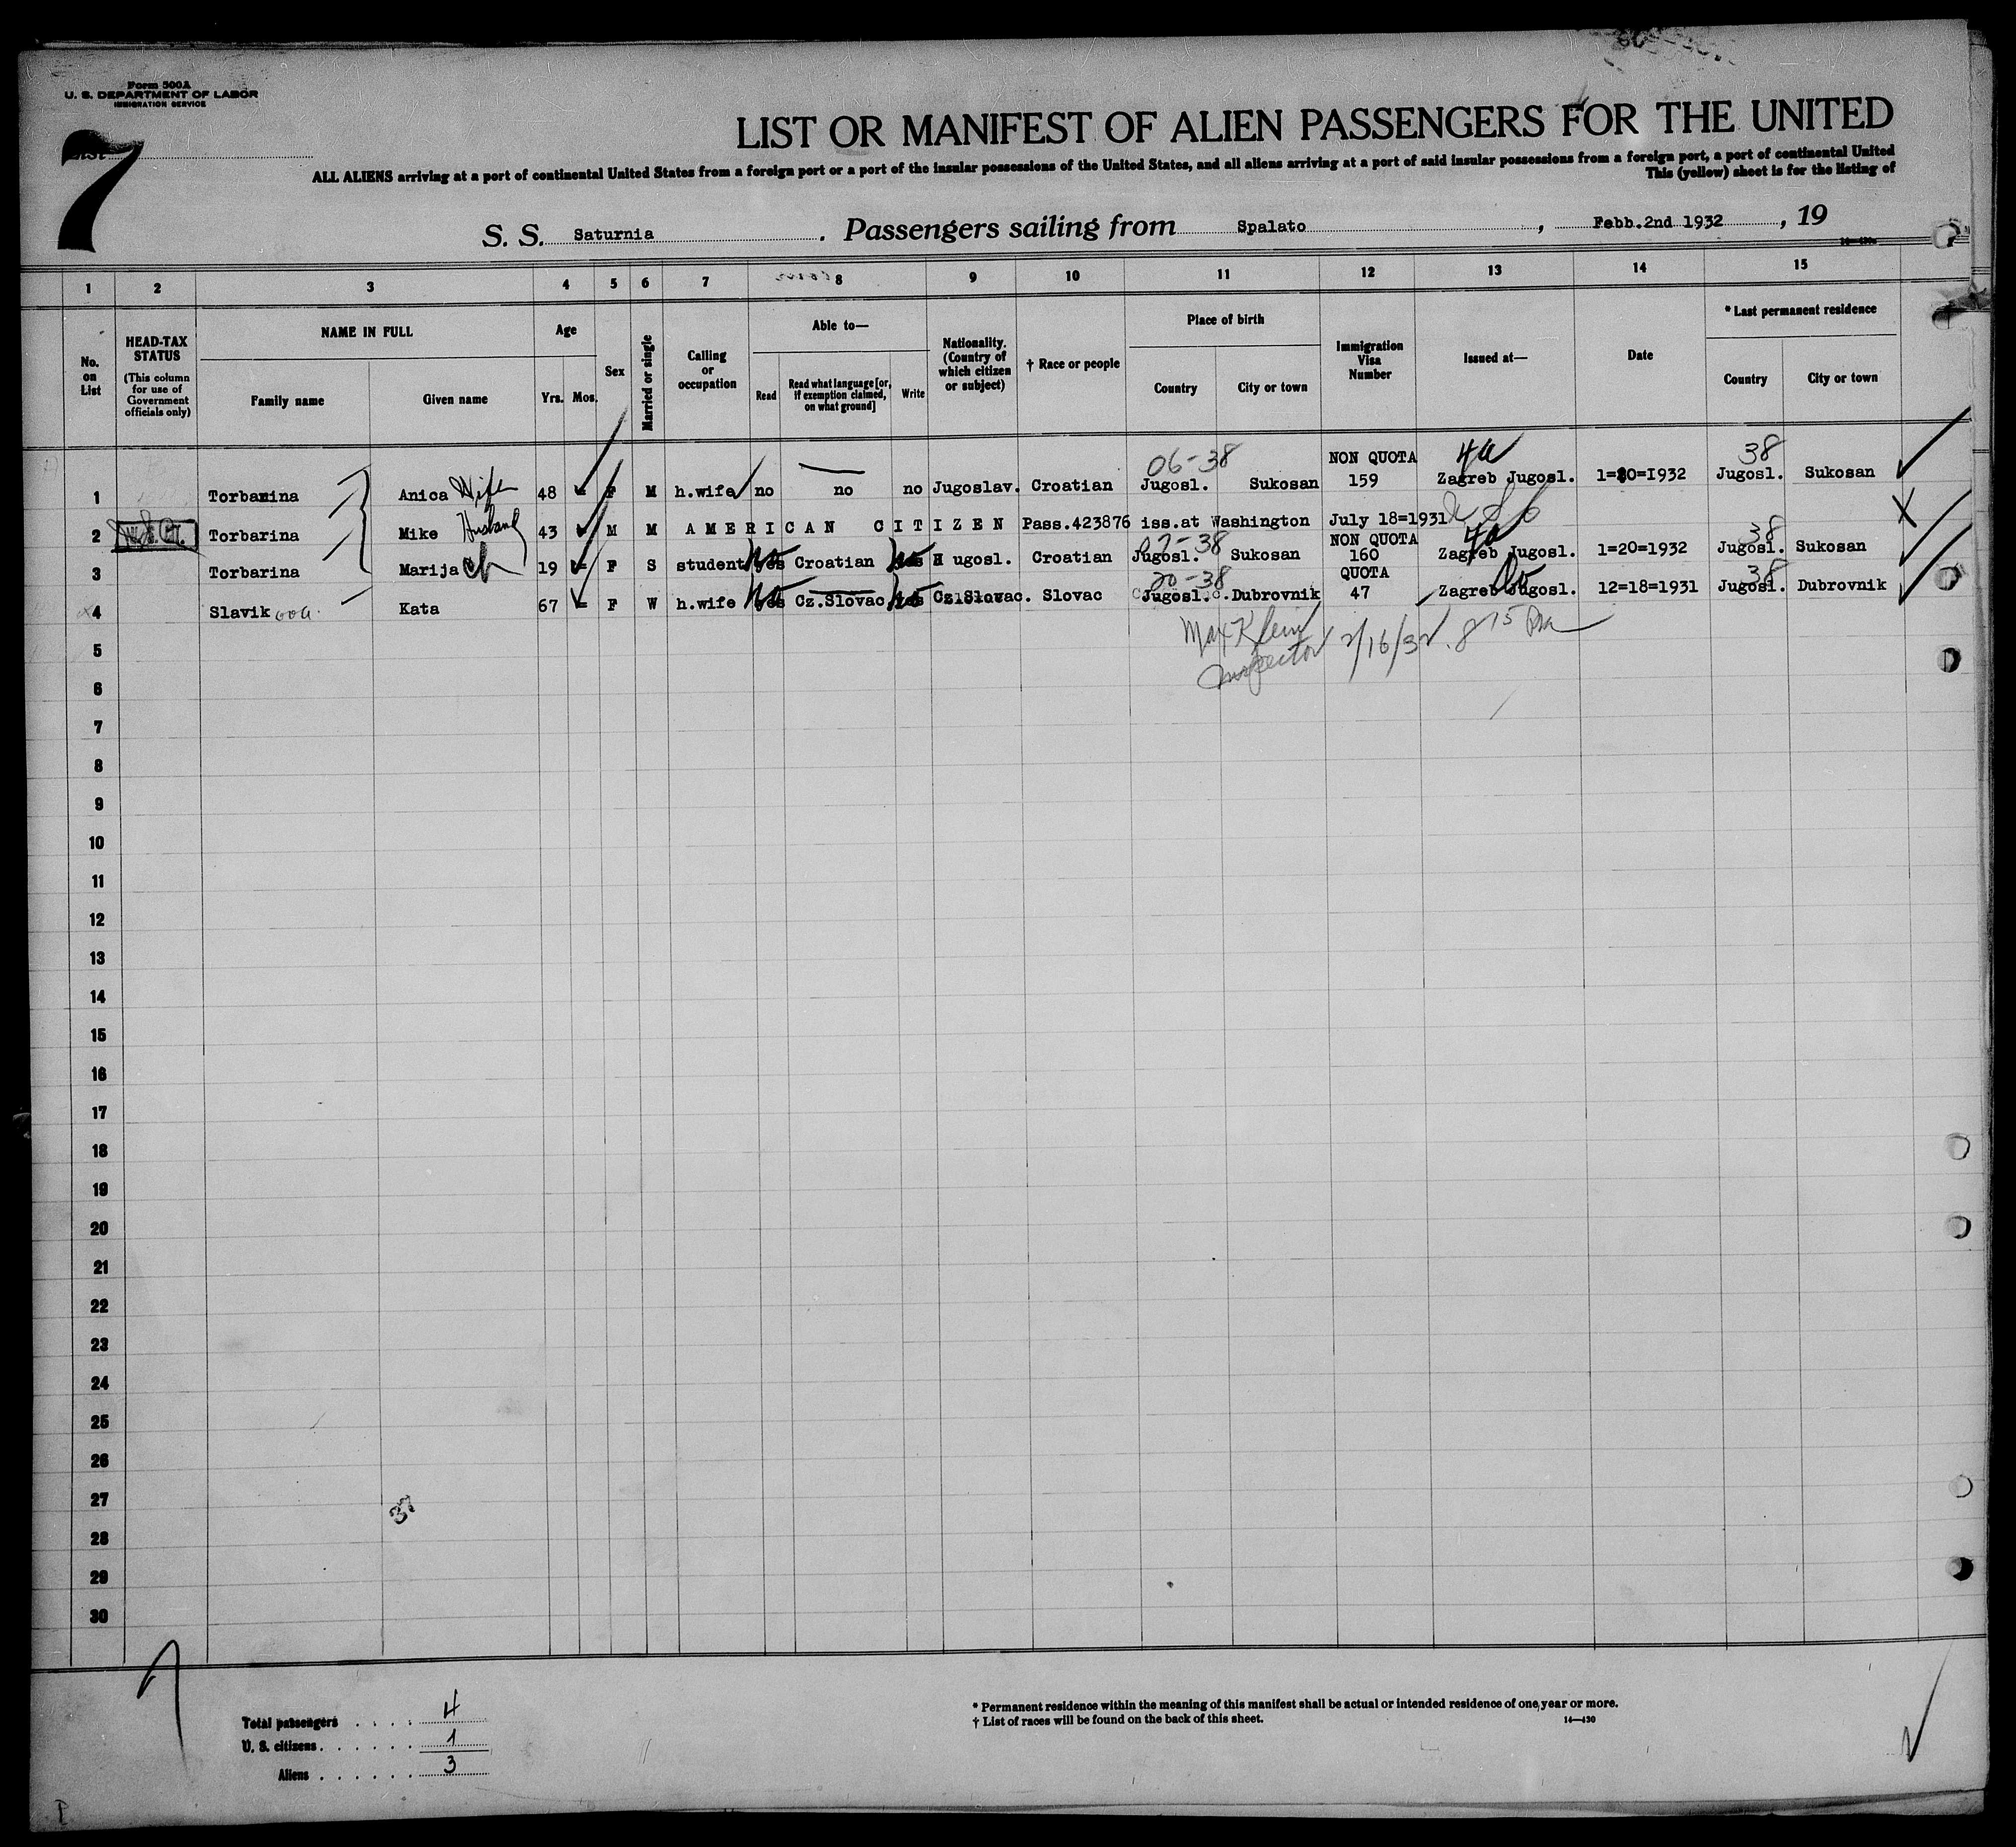 Form 500A
U. S. DEPARTMENT OF LABOR
IMMIGRATION SERVICE
List
7
LIST OR MANIFEST OF ALIEN PASSENGERS FOR THE UNITED
ALL ALIENS arriving at a port of continental United States from a foreign port or a port of the insular possessions of the United States, and all aliens arriving at a port of said insular possessions from a foreign port, a port of continental United
This (yellow) sheet is for the listing of
S. S. Saturnia. Passengers sailing from Spalato, Febb.2nd 1932, 19
1 2 3 4 5 6 7 8 9 10 11 12 13 14 15
No. on List
HEAD-TAX STATUS
(This column for use of Government officials only)
NAME IN FULL
Family name
Given name
Age
Yrs. Mos.
Sex
Married or single
Calling or occupation
Able to—
Read
Read what language [or, if exemption claimed, on what ground]
Write
Nationality. (Country of which citizen or subject)
† Race or people
Place of birth
Country
City or town
Immigration Visa Number
Issued at—
Date
* Last permanent residence
Country
City or town
06-38 NON QUOTA 4a 38
1 Torbarina Anica Wife 48 F M h.wife no no no Jugoslav. Croatian Jugosl. Sukosan 159 Zagreb Jugosl. 1=20=1932 Jugosl. Sukosan
2 Torbarina Mike Husband 43 M M AMERICAN CITIZEN Pass.423876 iss.at Washington July 18=1931
07-38 NON QUOTA 4a 38
3 Torbarina Marija ch 19 F S student yes no Croatian yes no ugosl. Croatian Jugosl. Sukosan 160 Zagreb Jugosl. 1=20=1932 Jugosl. Sukosan
20-38 QUOTA 38
4 Slavik Kata 67 = F W h.wife yes no Cz.Slovac yes no Cz.Slovac. Slovac Jugosl. Dubrovnik 47 Zagreb Jugosl. 12=18=1931 Jugosl. Dubrovnik
Max Klein 2/16/32. 8 15 Pm
Inspector
5
6
7
8
9
10
11
12
13
14
15
16
17
18
19
20
21
22
23
24
25
26
27
37
28
29
30
Total passengers . . . . 4
U. S. citizens . . . . . . 1
Aliens . . . . . . 3
* Permanent residence within the meaning of this manifest shall be actual or intended residence of one year or more.
† List of races will be found on the back of this sheet.
14—430